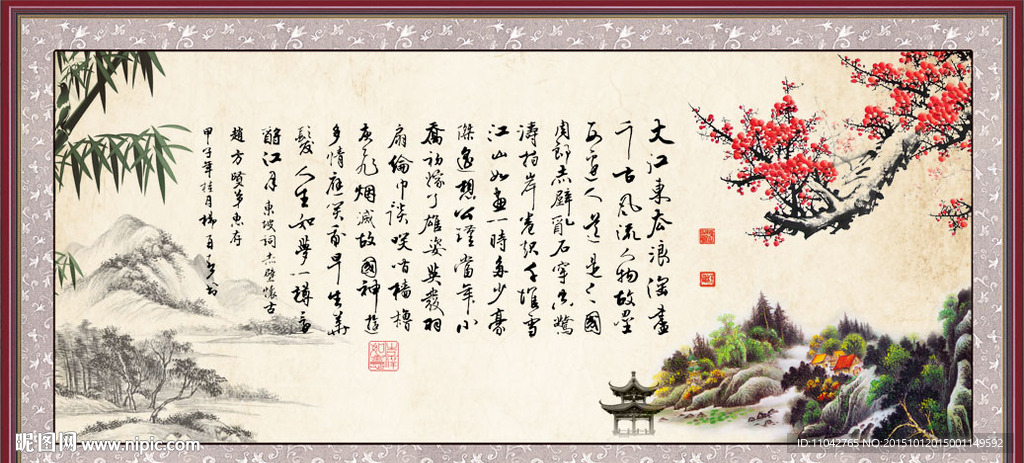 大江東去浪淘盡
千古風流人物故壘
西邊人道是三國
周郎赤壁亂石穿空驚
濤拍岸卷起千堆雪
江山如畫一時多少豪
傑遙想公瑾當年小
喬初嫁了雄姿英發羽
扇綸巾談笑間檣櫓
灰飛烟滅故國神遊
多情應笑我早生華
髮人生如夢一樽還
酹江月 東坡詞赤壁懷古
趙方 弟惠存
甲子年桂月 書
昵图网 www.nipic.com
ID:11042765 NO:20151012015001149592